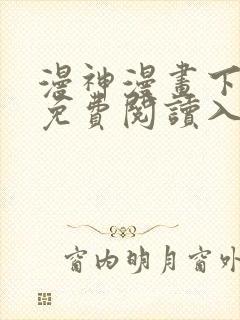 漫神漫畫下
免費閱讀入
窗内明月窗外